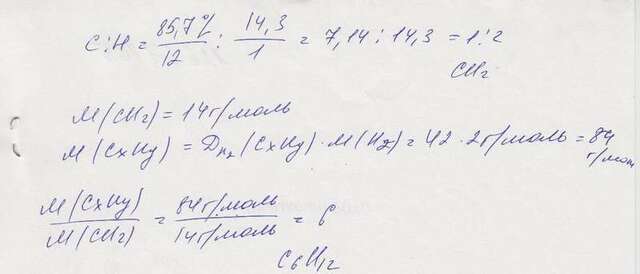 C:H = 85,7% / 12 : 14,3 / 1 = 7,14 : 14,3 = 1:2
CH₂
M(CH₂) = 14 г/моль
M(CxHy) = Dн₂(CxHy) · M(H₂) = 42 · 2 г/моль = 84 г/моль
M(CxHy) / M(CH₂) = 84 г/моль / 14 г/моль = 6
C₆H₁₂